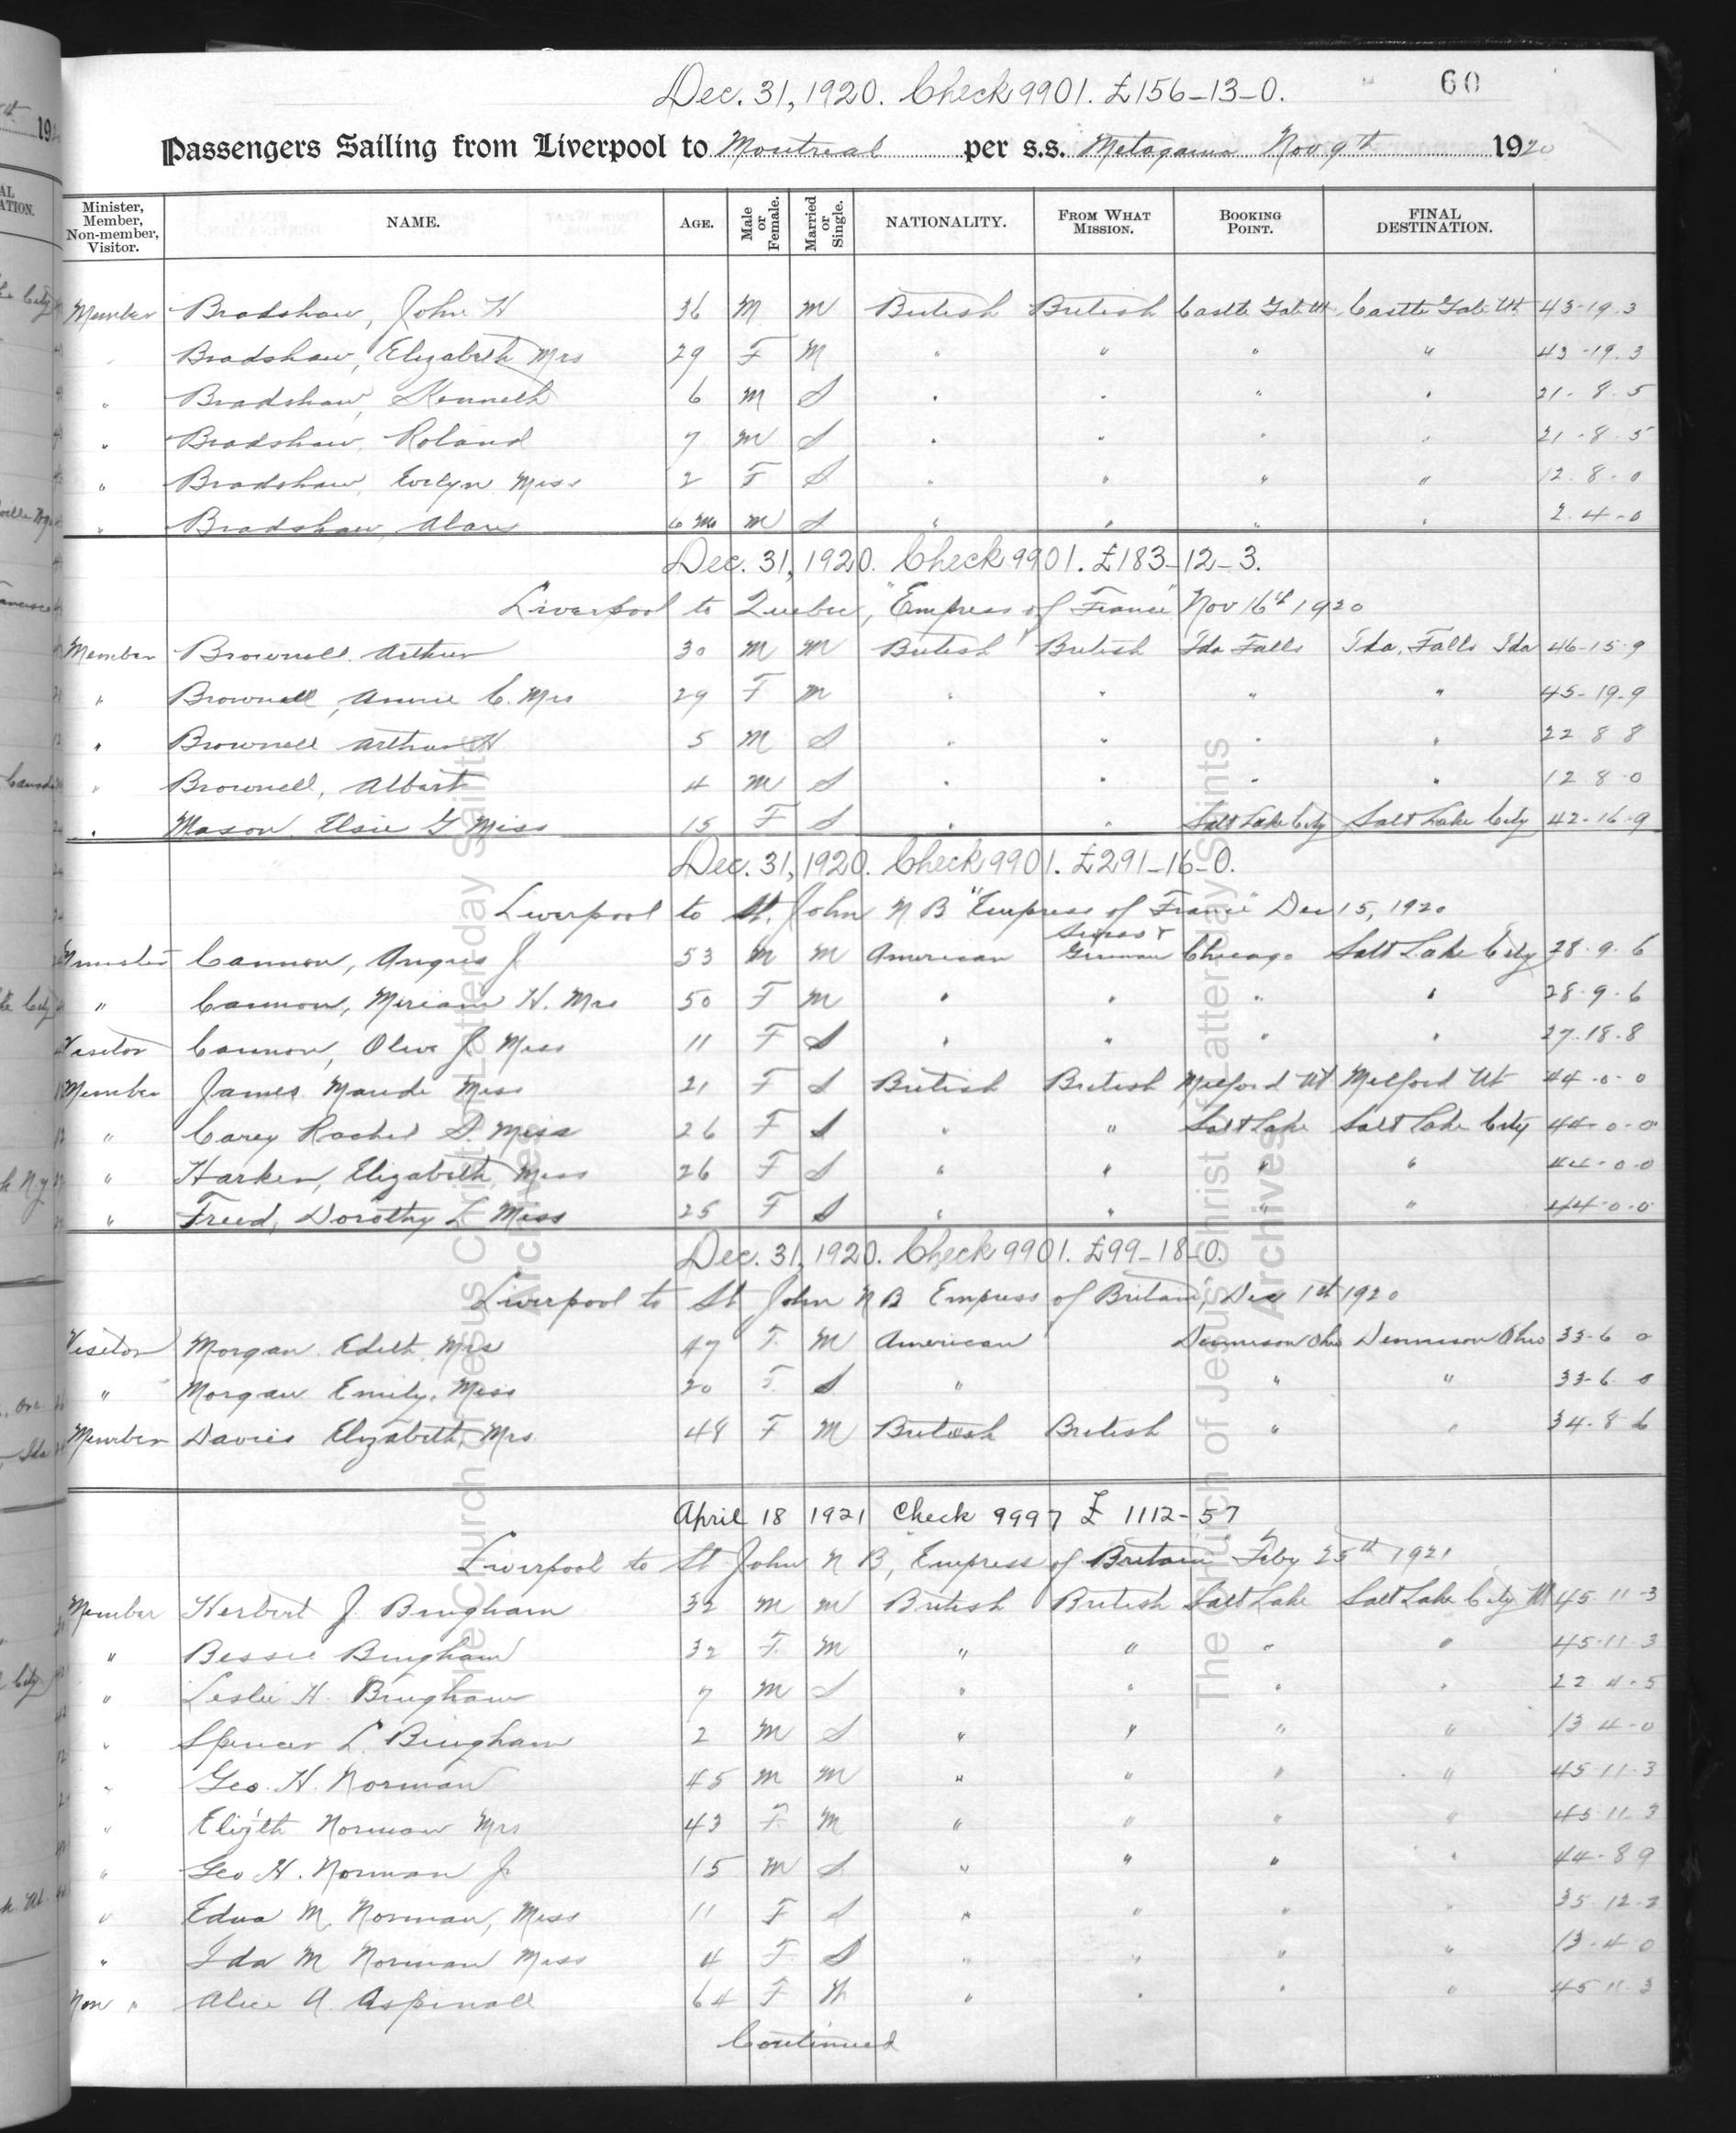 Dec. 31, 1920. Check 9901. £156-13-0.
60
Passengers Sailing from Liverpool to Montreal per s.s. Metagama Nov 9th 1920
Minister, Member, Non-member, Visitor. NAME. AGE. Male or Female. Married or Single. NATIONALITY. FROM WHAT MISSION. BOOKING POINT. FINAL DESTINATION.
Member Bradshaw, John H 36 M M British British Castle Gate Ut. Castle Gate Ut. 43-19.3
" Bradshaw, Elizabeth Mrs 29 F M " " " " 43-19.3
" Bradshaw, Kenneth 6 M S " " " " 21.8.5
" Bradshaw, Roland 7 M S " " " " 21.8.5
" Bradshaw, Evelyn Miss 2 F S " " " " 12.8-0
" Bradshaw, Alan 6 Mo M S " " " " 2.4-0
Dec. 31, 1920. Check 9901. £183-12-3.
Liverpool to Quebec, "Empress of France" Nov 16th 1920
Member Brownell Arthur 30 M M British British Ida Falls Ida. Falls Ida 46-15-9
" Brownell, Annie C. Mrs 29 F M " " " " 45-19-9
" Brownell Arthur H 5 M S " " " " 22 8 8
" Brownell, Albert 4 M S " " " " 12 8-0
" Mason, Elsie G Miss 15 F S " " Salt Lake City Salt Lake City 42-16-9
Dec. 31, 1920. Check 9901. £291-16-0.
Liverpool to St. John N B "Empress of France" Dec 15, 1920
Minister Cannon, Angus J 53 M M American Swiss & German Chicago Salt Lake City 28.9.6
" Cannon, Miriam H. Mrs 50 F M " " " " 28.9.6
Visitor Cannon, Olive J. Miss 11 F S " " " " 27.18.8
Member James Maude Miss 21 F S British British Milford Ut Milford Ut 44-0-0
" Carey Rachel S. Miss 26 F S " " Salt Lake Salt Lake City 44-0-0
" Harken, Elizabeth, Miss 26 F S " " " " 44-0-0
" Freed, Dorothy L Miss 25 F S " " " " 44-0-0
Dec. 31, 1920. Check 9901. £99-18-0.
Liverpool to St John N B Empress of Britain, Dec 1st 1920
Visitor Morgan Edith Mrs 47 F. M American Dennison Ohio Dennison Ohio 33-6 0
" Morgan Emily, Miss 20 F. S " " " 33-6.0
Member Davies Elizabeth, Mrs 48 F M British British " " 34.8-6
April 18 1921 Check 9997 £ 1112-57
Liverpool to St John N B, "Empress of Britain Feby 25th 1921
Member Herbert J. Bingham 32 M M British British Salt Lake Salt Lake City Ut 45-11-3
" Bessie Bingham 32 F. M " " " " 45-11-3
" Leslie H. Bingham 7 M S " " " " 22 4-5
" Spencer L. Bingham 2 M S " " " " 13 4-0
" Geo. H. Norman 45 M M " " " " 45 11-3
" Elizth Norman Mrs 43 F. M " " " " 45 11.3
" Geo H. Norman Jr 15 M S " " " " 44-8 9
" Edna M. Norman, Miss 11 F S " " " " 35-12-2
" Ida M Norman Miss 4 F S " " " " 13-4 0
Non " Alice A. Aspinall 64 F " " " " 45 11-3
Continued
The Church of Jesus Christ of Latter-day Saints Archives
The Church of Jesus Christ of Latter-day Saints Archives